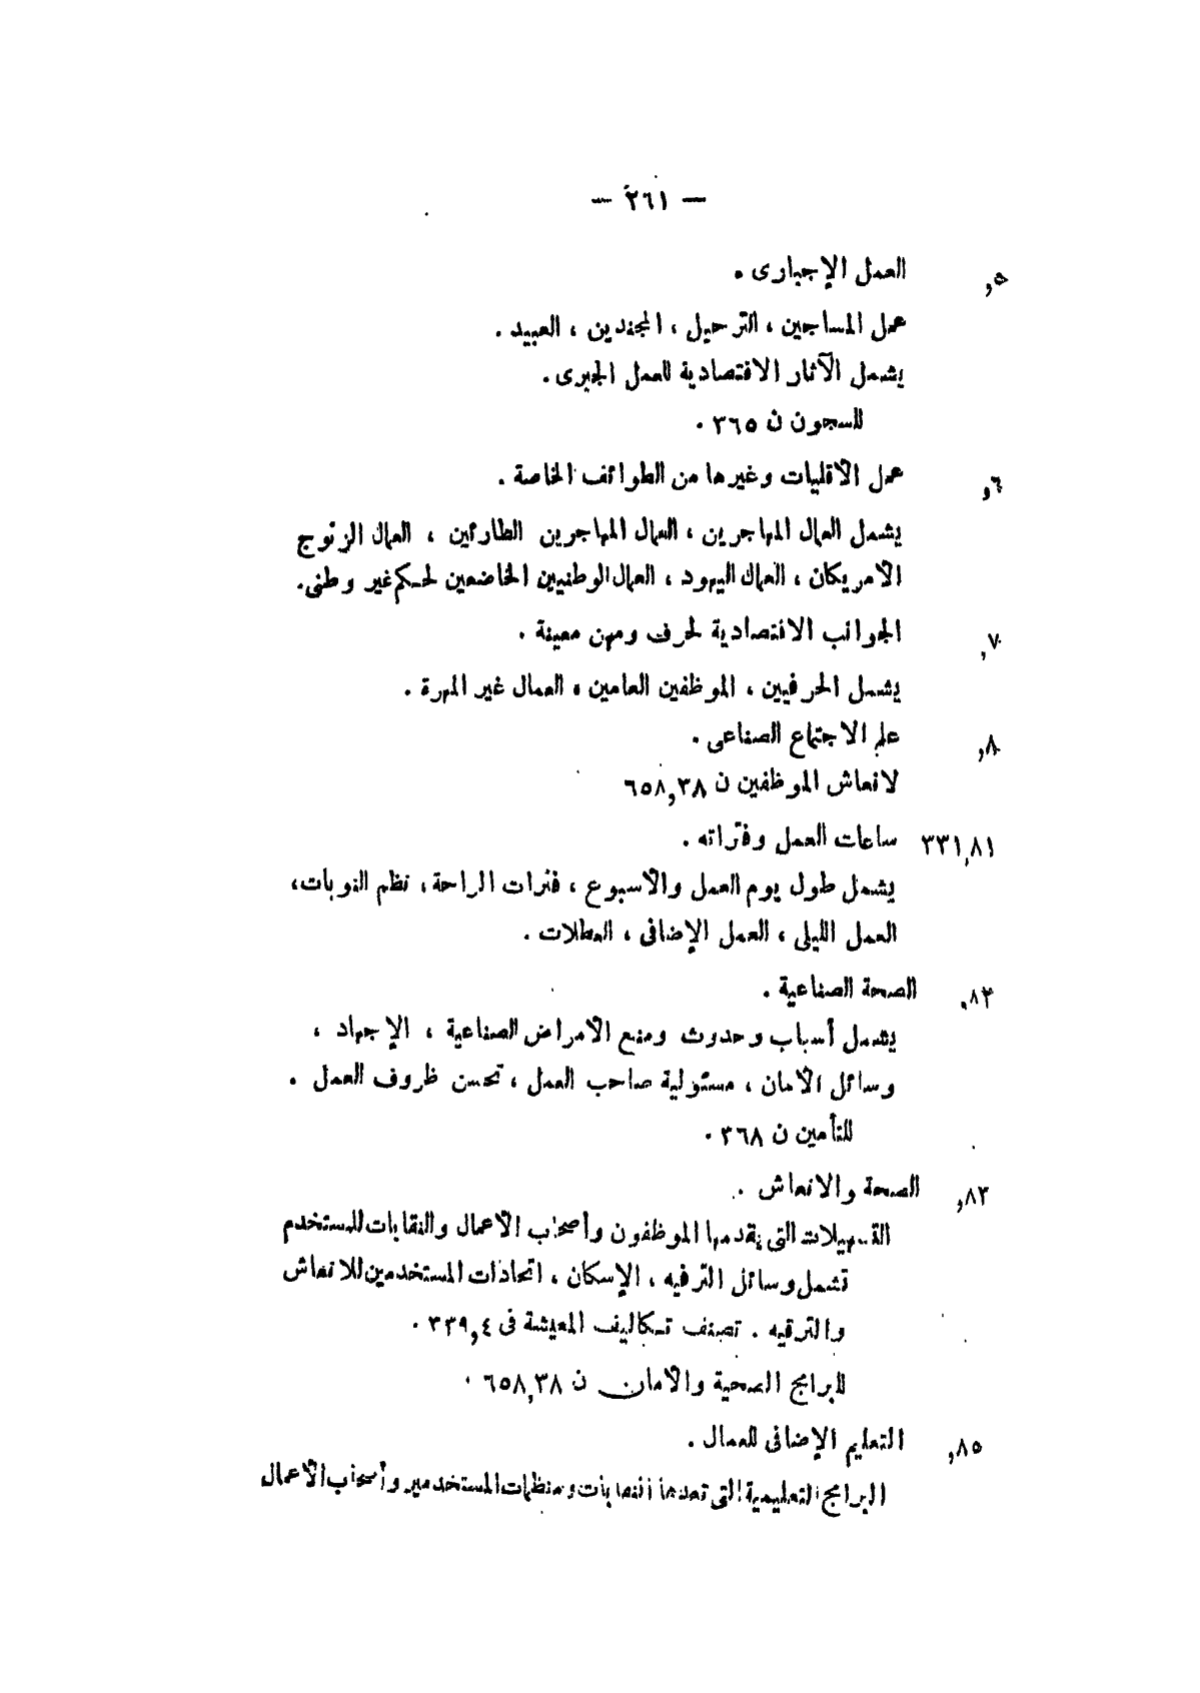 — ٢٦١ —
٥, العمل الإجبارى .
عمل المساجين ، الترحيل ، المجندين ، العبيد .
يشمل الآثار الاقتصادية للعمل الجبرى .
للسجون ن ٣٦٥ .
٦, عمل الأقليات وغيرها من الطوائف الخاصة .
يشمل العمال المهاجرين ، العمال المهاجرين الطارئين ، العمال الزنوج
الأمريكان ، العمال اليهود ، العمال الوطنيين الخاضعين لحكم غير وطنى .
٧, الجوانب الاقتصادية لحرف ومهن معينة .
يشمل الحرفيين ، الموظفين العامين ، العمال غير المهرة .
٨, علم الاجتماع الصناعى .
لانعاش الموظفين ن ٦٥٨,٣٨
٣٣١,٨١ ساعات العمل وفتراته .
يشمل طول يوم العمل والأسبوع ، فترات الراحة ، نظم النوبات ،
العمل الليلى ، العمل الإضافى ، العطلات .
٨٢, الصحة الصناعية .
يشمل أسباب وحدوث ومنع الأمراض الصناعية ، الإجهاد ،
وسائل الأمان ، مسئولية صاحب العمل ، تحسن ظروف العمل .
للتأمين ن ٣٦٨ .
٨٣, الصحة والانعاش .
التسهيلات التى يقدمها الموظفون وأصحاب الأعمال والنقابات للمستخدم
تشمل وسائل الترفيه ، الإسكان ، اتحادات المستخدمين للانعاش
والترقيه . تصنف تكاليف المعيشة فى ٣٣٩,٤ .
لبرامج الصحية والأمان ن ٦٥٨,٣٨ .
٨٥, التعليم الإضافى للعمال .
البرامج التعليمية التى تعدها النقابات ومنظمات المستخدمين وأصحاب الأعمال